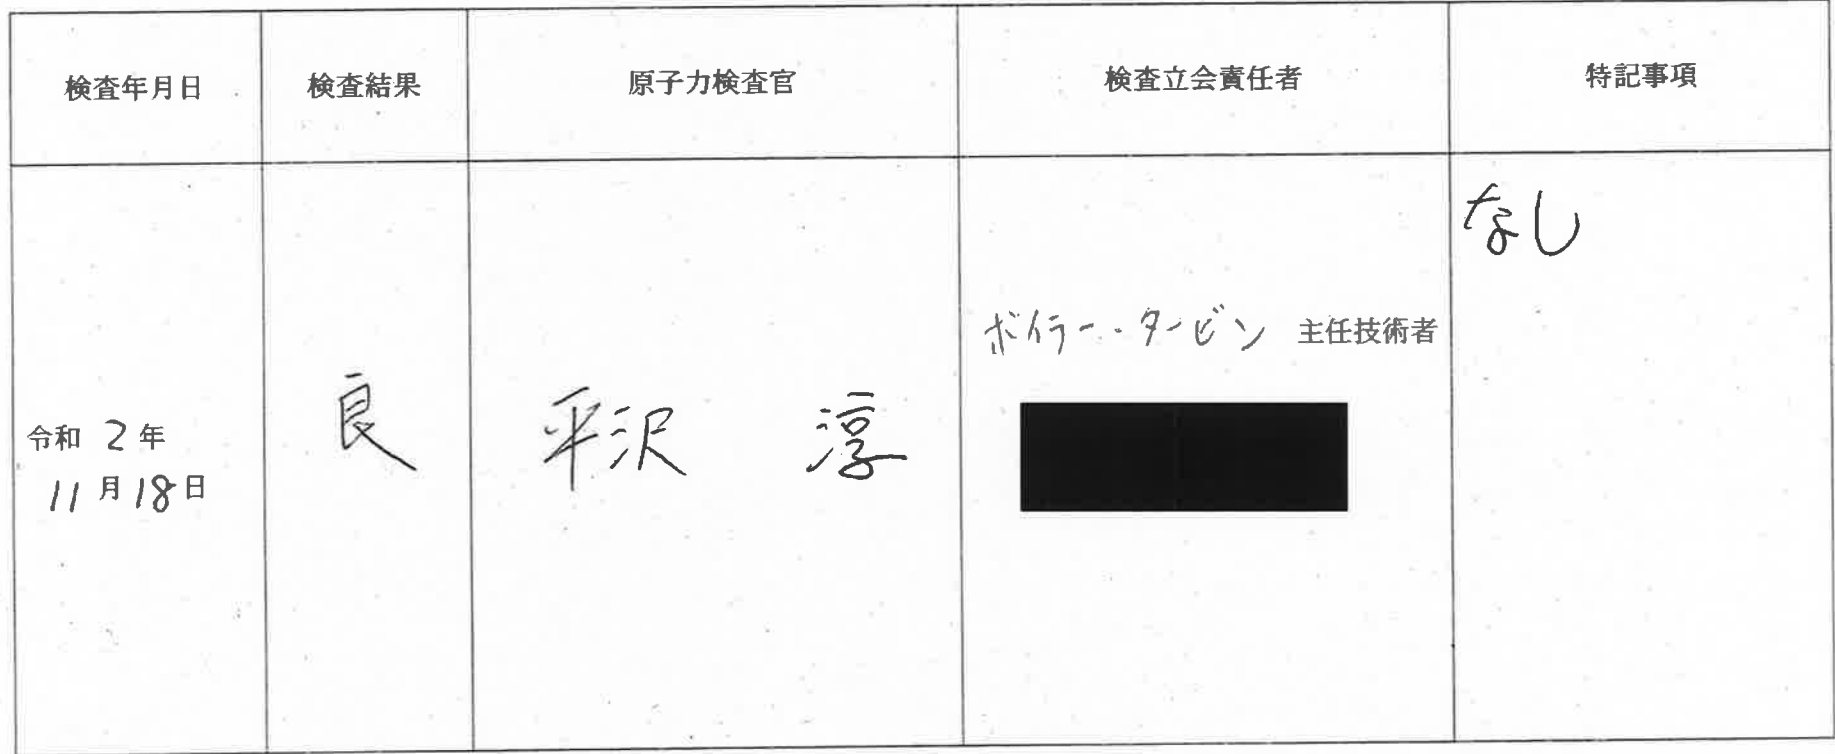 検査年月日
検査結果
原子力検査官
検査立会責任者
特記事項
令和 2 年
11 月 18 日
良
平沢 淳
ボイラー・タービン 主任技術者
なし